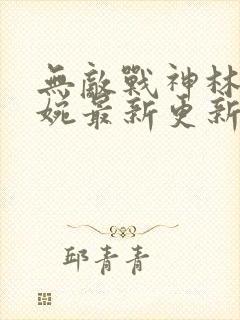 無敵戰神林
婉最新更新
邱青青